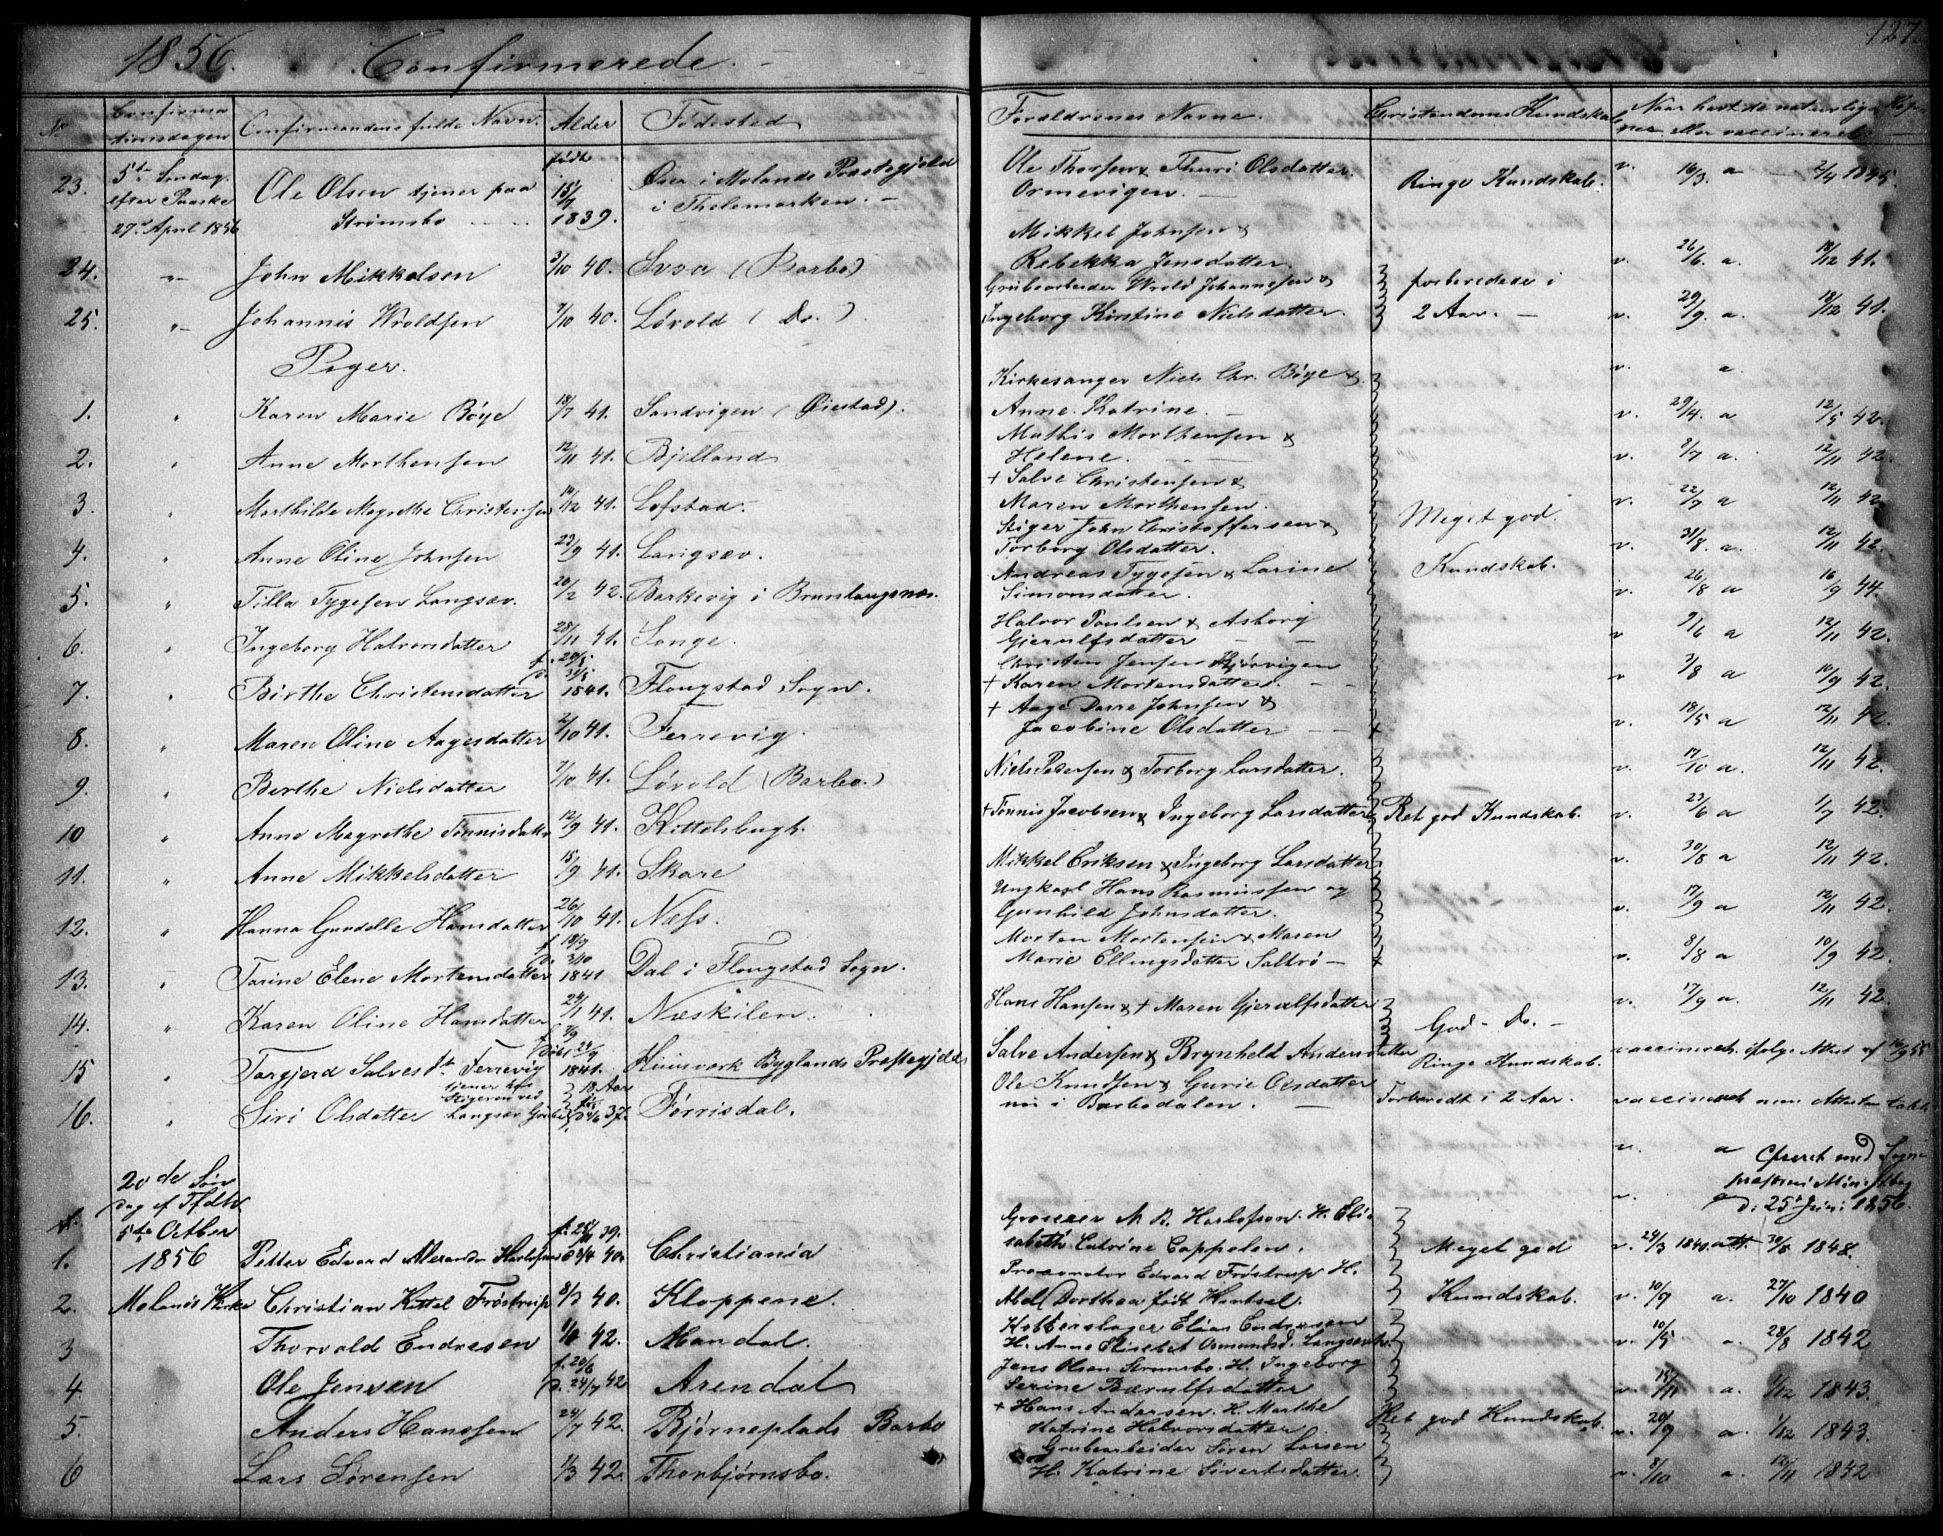 127.
1856. Confirmerede.
No Confirmationsdagen Confirmandens fulde Navn. Alder Fødested Forældrenes Navne. Christendoms Kundskab Naar havt de naturlige eller vaccineret
23. 5te Søndag efter Paaske 27de April 1856 Ole Olsen tjener paa Strømsbo født 15/7 1839. i Molands Præstegjeld i Thelemarken. Ole Thorsen & Thuri Olsdatter Ormevigen. Ringe Kundskab. v. 16/3. a 2/4 1845.
24. " John Mikkelsen 3/10 40. (Barbo) Mikkel Johnsen & Rebekka Jensdatter. v. 26/6. a. 18/12 41.
25. " Johannis Wroldsen 7/10 40. Løvold (Do.) Grubearbeider Wrold Johannesen & Ingeborg Kirstine Nielsdatter. forberedede i 2 Aar. v. 29/9. a. 18/12 41.
Piger.
v. a
1. " Karen Marie Bøye 18/7 41. Sandvigen (Øiestad). Kirkesanger Niels Chr. Bøye & Anne Katrine. v. 29/4. a 12/5 42.
2. " Anne Morthensen 12/11 41. Bjelland Mathis Morthensen & Helene. v. 2/7 a. 12/11 42.
3. " Marthilde Magrethe Christensen 14/12 41. Lofstad. + Salve Christensen & Maren Morthensen. v. 22/7 a 12/11 42
4. " Anne Oline Johnsen 23/9 41. Langsæv. Stiger John Christoffersen & Torborg Olsdatter. Meget god Kundskab. v. 31/8. a. 12/11 42.
5. " Tilla Tygesen Langsæv. 20/2 42. Barkevig i Brunlangsnæs. Andreas Tygesen & Larine Simonsdatter. v. 26/8 a 16/9 44.
6. " Ingeborg Halvorsdatter 28/11 41. Songe. Halvor Poulsen & Asborg Gjerulfsdatter v 9/6 a 12/11 42.
7. " Birthe Christensdatter f. 20/5 d. 31/5 1841. Flougstad Sogn. Christen Jensen Hjørvigen + Karen Mortensdatter. v 3/8 a 10/9 42.
8. " Maren Oline Aagesdatter 2/10 41. Ferrevig. + Aage Darre Johnsen & Jacobine Olsdatter v. 18/5 a 12/11 42.
9. " Berthe Nielsdatter 7/10 41. Løvold (Barbo.) Niels Pedersen & Torborg Larsdatter. v. 17/10 a. 12/11 42.
10 " Anne Magrethe Tønnisdatter 12/9 41. Kittelsbugt. + Tønnis Jacobsen & Ingeborg Larsdatter Ret god Kundskab. v. 23/6 a 1/7 42.
11. " Anne Mikkelsdatter 15/9 41. Skare Mikkel Eriksen & Ingeborg Larsdatter v. 30/8 a 12/11 42.
12. " Hanna Gundelle Hansdatter 26/10 41. Næss. Ungkarl Hans Rasmussen og Gunhild Johnsdatter. v. 17/9 a 12/11 42.
13. " Tarine Elene Mortensdatter f. 18/9 d. 3/10 1841 Dal i Flougstad Sogn. Morten Mortensen & Maren Marie Ellingsdatter Saltrø v. 8/8 a 10/9 42.
14. " Karen Oline Hansdatter 24/1 41. Næskilen. Hans Hansen & + Maren Gjerulfsdatter God Do. v. 17/9 a. 12/11 42.
15 " Torgjerd Salvesdt Ferrevig 1841. Byglands Præstegjeld Salve Andersen & Brynheld Andersdatter Ringe Kundskab. vaccineret ifølge Attest af 16/9 55
16. " Siri Olsdatter tjener hos Stigeren ved Langsæv Grube 18 Aar 37. Tørrisdal. Ole Knudsen & Gurie Olsdatter nu i Barbodalen. Forberedt i 2 Aar. vaccineret
v. a Cfereret med
d: 25de Juni 1856.
20de Søndag 5te Octber 1856
1. Petter Edvard Alexander 39. 40. Christiania Grosserer M. H. Elisabeth Catrine Cappelen. Meget god v. 24/3 1840 att. 30/8 1848.
2. Molands Kirke Christian Kittel Frøstrup 8/7 40. Kloppene. Procurator Edvard Frøstrup H. Abel Dorthea født Kundskab. v. 10/9 a. 27/10 1840
3 Thorvald Endresen 42. Mandal. Kobberslager Elias Endresen H. Anne Elisebet Osmundsd. v. 10/5 a. 28/8 1842
4 Ole Jensen f. 20/6 d. 24/7 42 Arendal Jens Olsen Strømsbo. H. Ingeborg Serine v. 15/11 a. 1/12 1843.
5 Anders Hanssen 24/7 42. Bjørneplads Barbo + Hans Andersen. H. Marthe Katrine Halvorsdatter Ret god Kundskab. v. 20/9 a. 1/12 1843.
6 Lars Sørensen 1/3 42. Thorbjørnsbo. Grubearbeider Søren Larsen H. Katrine Sivertsdatter. v. 8/10 a. 12/11 1842